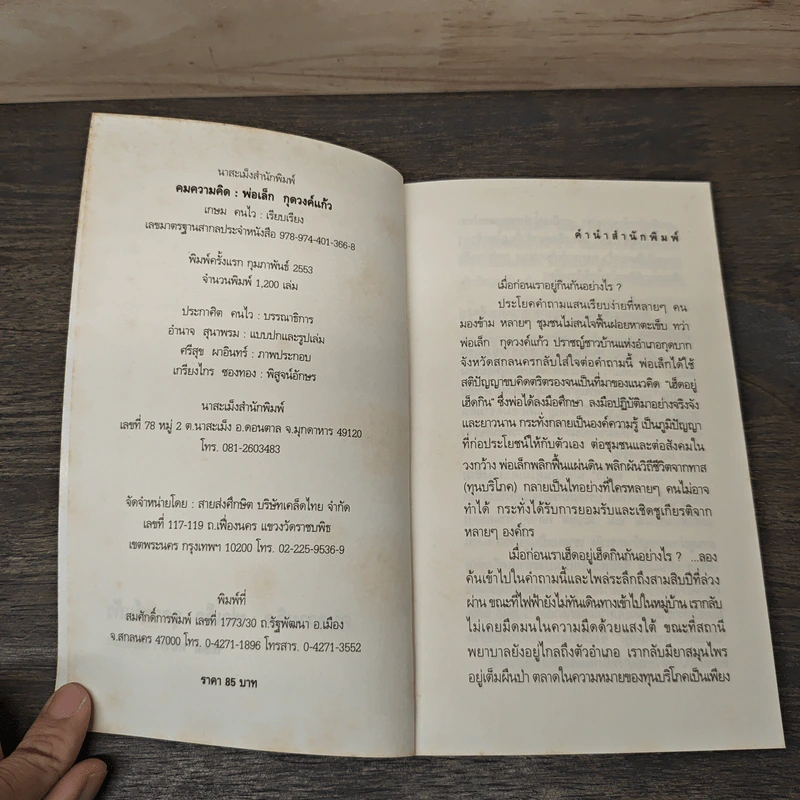 นาสะเม็งสำนักพิมพ์
คมความคิด : พ่อเล็ก กุดวงค์แก้ว
เกษม คนไว : เรียบเรียง
เลขมาตรฐานสากลประจำหนังสือ 978-974-401-366-8
พิมพ์ครั้งแรก กุมภาพันธ์ 2553
จำนวนพิมพ์ 1,200 เล่ม
ประกาศิต คนไว : บรรณาธิการ
อำนาจ สุนาพรม : แบบปกและรูปเล่ม
ศรีสุข ผาอินทร์ : ภาพประกอบ
เกรียงไกร ซองทอง : พิสูจน์อักษร
นาสะเม็งสำนักพิมพ์
เลขที่ 78 หมู่ 2 ต.นาสะเม็ง อ.ดอนตาล จ.มุกดาหาร 49120
โทร. 081-2603483
จัดจำหน่ายโดย : สายส่งศึกษิต บริษัทเคล็ดไทย จำกัด
เลขที่ 117-119 ถ.เฟื่องนคร แขวงวัดราชบพิธ
เขตพระนคร กรุงเทพฯ 10200 โทร. 02-225-9536-9
พิมพ์ที่
สมศักดิ์การพิมพ์ เลขที่ 1773/30 ถ.รัฐพัฒนา อ.เมือง
จ.สกลนคร 47000 โทร. 0-4271-1896 โทรสาร. 0-4271-3552
ราคา 85 บาท
คำนำสำนักพิมพ์
เมื่อก่อนเราอยู่กินกันอย่างไร ?
ประโยคคำถามแสนเรียบง่ายที่หลายๆ คน
มองข้าม หลายๆ ชุมชนไม่สนใจฟื้นฝอยหาตะเข็บ ทว่า
พ่อเล็ก กุดวงค์แก้ว ปราชญ์ชาวบ้านแห่งอำเภอกุดบาก
จังหวัดสกลนครกลับใส่ใจต่อคำถามนี้ พ่อเล็กได้ใช้
สติปัญญาขบคิดตริตรองจนเป็นที่มาของแนวคิด “เฮ็ดอยู่
เฮ็ดกิน” ซึ่งพ่อได้ลงมือศึกษา ลงมือปฏิบัติมาอย่างจริงจัง
และยาวนาน กระทั่งกลายเป็นองค์ความรู้ เป็นภูมิปัญญา
ที่ก่อประโยชน์ให้กับตัวเอง ต่อชุมชนและต่อสังคมใน
วงกว้าง พ่อเล็กพลิกฟื้นแผ่นดิน พลิกผันวิถีชีวิตจากทาส
(ทุนบริโภค) กลายเป็นไทอย่างที่ใครหลายๆ คนไม่อาจ
ทำได้ กระทั่งได้รับการยอมรับและเชิดชูเกียรติจาก
หลายๆ องค์กร
เมื่อก่อนเราเฮ็ดอยู่เฮ็ดกินกันอย่างไร ? ...ลอง
ค้นเข้าไปในคำถามนี้และไพล่ระลึกถึงสามสิบปีที่ล่วง
ผ่าน ขณะที่ไฟฟ้ายังไม่ทันเดินทางเข้าไปในหมู่บ้าน เรากลับ
ไม่เคยมืดมนในความมืดด้วยแสงใต้ ขณะที่สถานี
พยาบาลยังอยู่ไกลถึงตัวอำเภอ เรากลับมียาสมุนไพร
อยู่เต็มผืนป่า ตลาดในความหมายของทุนบริโภคเป็นเพียง